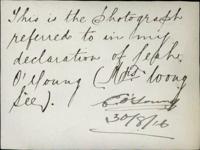 This is the photograph
referred to in my
declaration of
O'Young (Mrs. Wong
See).
O'Young
30/8/16